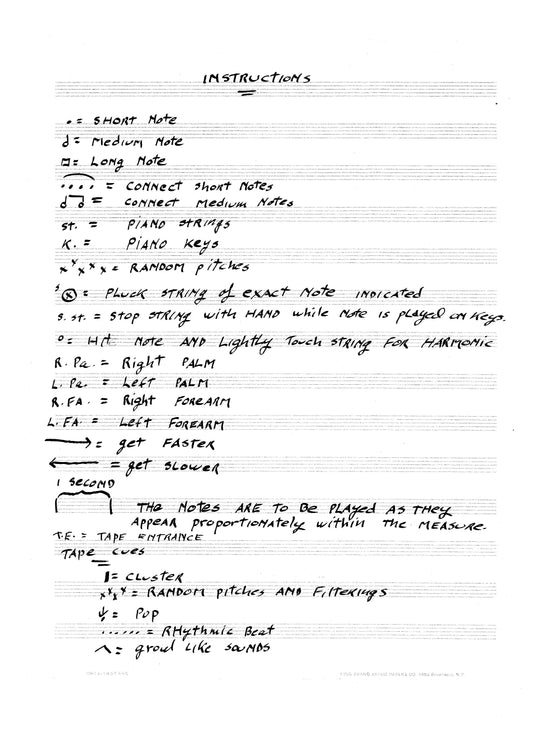 INSTRUCTIONS
= SHORT Note
= Medium Note
= Long Note
= CONNECT short Notes
= CONNECT Medium Notes
st. = PIANO STRINGS
K. = PIANO Keys
x x x x x = RANDOM pitches
s ⓧ = PLUCK STRING of exact Note INDICATED
s. st. = Stop STRING with HAND while Note is played on Keys.
o = Hit Note AND Lightly Touch STRING FOR HARMONIC
R. Pa. = Right PALM
L. Pa. = Left PALM
R. FA. = Right FOREARM
L. FA. = Left FOREARM
→ = get FASTER
← = get SLOWER
1 SECOND
THe NOTES ARE TO BE PLAYED AS THEY
APPEAR proportionately within THE MEASURE.
T.E. = TAPE ENTRANCE
TAPE cues
= CLUSTER
x x x x = RANDOM pitches AND Filterings
= Pop
....... = RHythmic Beat
= growl Like sounds